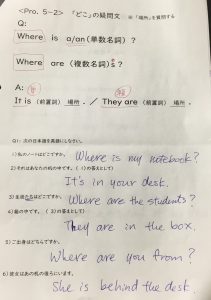 <Pro. 5-2> 「どこ」の疑問文 ※「場所」を質問する
Q:
Where is a/an(単数名詞)?
Where are (複数名詞)s?
A:
It is (前置詞) 場所. / They are (前置詞) 場所.
Q1: 次の日本語を英語にしなさい。
1)私のノートはどこですか。
Where is my notebook?
2)それはあなたの机の中です。( 1)の答えとして)
It's in your desk.
3)生徒たちはどこですか。
Where are the students?
4)箱の中です。( 3)の答えとして)
They are in the box.
5)ご出身はどちらですか。
Where are you from?
6)彼女はあの机の後ろにいます。
She is behind the desk.